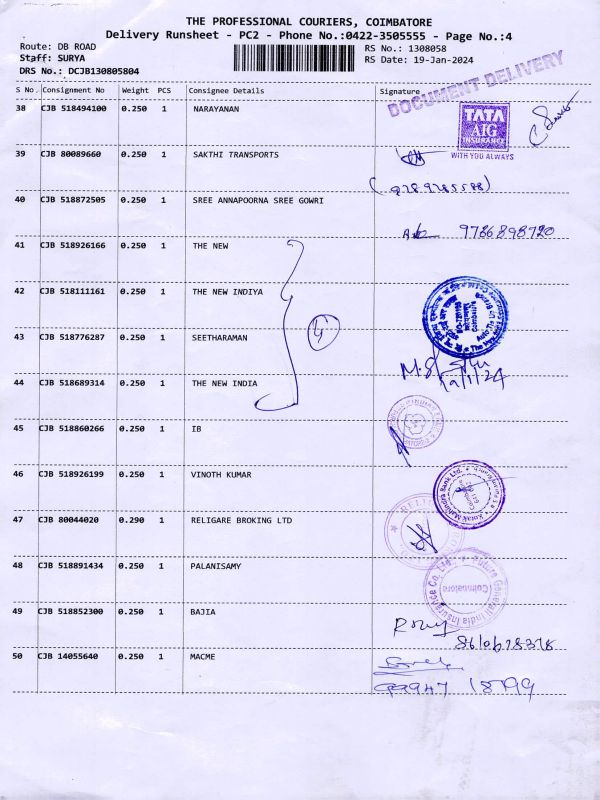 THE PROFESSIONAL COURIERS, COIMBATORE
Delivery Runsheet - PC2 - Phone No.:0422-3505555 - Page No.:4
Route: DB ROAD
RS No.: 1308058
Staff: SURYA
RS Date: 19-Jan-2024
DRS No.: DCJB130805804
S No. Consignment No Weight PCS Consignee Details Signature
DOCUMENT DELIVERY
38 CJB 518494100 0.250 1 NARAYANAN
TATA
AIG
INSURANCE
WITH YOU ALWAYS
39 CJB 80089660 0.250 1 SAKTHI TRANSPORTS
40 CJB 518872505 0.250 1 SREE ANNAPOORNA SREE GOWRI
9786898720
41 CJB 518926166 0.250 1 THE NEW
42 CJB 518111161 0.250 1 THE NEW INDIYA
4
43 CJB 518776287 0.250 1 SEETHARAMAN
44 CJB 518689314 0.250 1 THE NEW INDIA
45 CJB 518860266 0.250 1 IB
46 CJB 518926199 0.250 1 VINOTH KUMAR
Kotak Mahindra Bank Ltd.
47 CJB 80044020 0.290 1 RELIGARE BROKING LTD
48 CJB 518891434 0.250 1 PALANISAMY
Future Generali India Insurance Co. Ltd.
Coimbatore
49 CJB 518852300 0.250 1 BAJIA
50 CJB 14055640 0.250 1 MACME